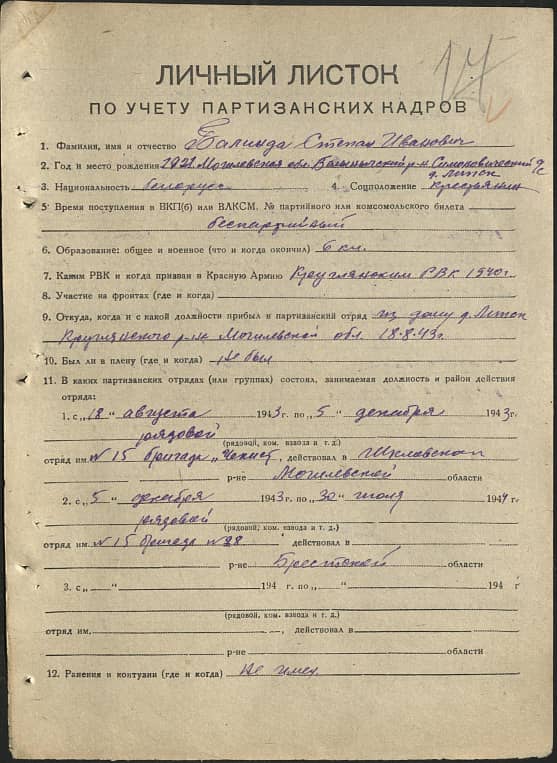 17
ЛИЧНЫЙ ЛИСТОК
ПО УЧЕТУ ПАРТИЗАНСКИХ КАДРОВ
1. Фамилия, имя и отчество Балында Степан Иванович
2. Год и место рождения 1921 Могилевская обл. Белыничский р-н Симоновический с/с
д. Липск
3. Национальность белорус 4. Соцположение крестьянин
5. Время поступления в ВКП(б) или ВЛКСМ. № партийного или комсомольского билета
беспартийный
6. Образование: общее и военное (что и когда окончил) 6 кл.
7. Каким РВК и когда призван в Красную Армию Круглянским РВК 1940г.
8. Участие на фронтах (где и когда)
9. Откуда, когда и с какой должности прибыл в партизанский отряд из дому д. Липск
Круглянского р-на Могилевской обл. 18.8.43г.
10. Был ли в плену (где и когда) Не был
11. В каких партизанских отрядах (или группах) состоял, занимаемая должность и район действия
отряда:
1. с „18" августа 1943г. по „5" декабря 1943г.
рядовой
(рядовой, ком. взвода и т. д.)
отряд им. №15 бригада „Чекист", действовал в Шкловском
р-не Могилевской области
2. с „5" декабря 1943г. по „30" июля 1944г.
рядовой
(рядовой, ком. взвода и т. д.)
отряд им. №15 бригада №28 действовал в
р-не Брестской области
3. с „ " 194 г. по „ " 194 г.
(рядовой, ком. взвода и т. д.)
отряд им. , действовал в
р-не области
12. Ранения и контузии (где и когда) Не имел